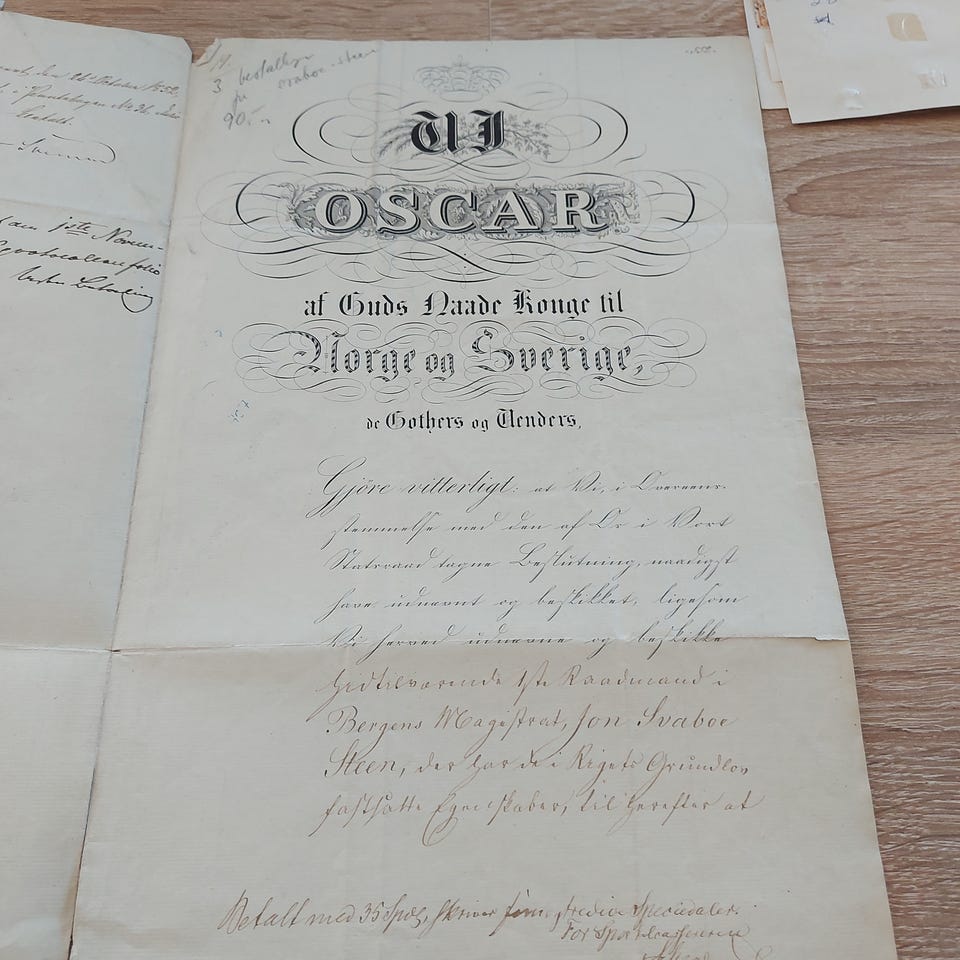 3 bestallinger
pr svaboe-steen
90.-
VI
OSCAR
af Guds Naade Konge til
Norge og Sverige,
de Gothers og Venders,
Gjöre vitterligt: at Vi, i Overeens-
stemmelse med den af Os i Vort
Statsraad tagne Beslutning, naadigst
have udnævnt og beskikket, ligesom
Vi herved udnævne og beskikke
hidtilværende 1ste Raadmand i
Bergens Magistrat, Jon Svaboe
Steen, der har de i Rigets Grundlov
fastsatte Egenskaber, til herefter at
Betalt med 35 Spd, skriver fem og tredive Speciedaler.
For Sportelcassereren